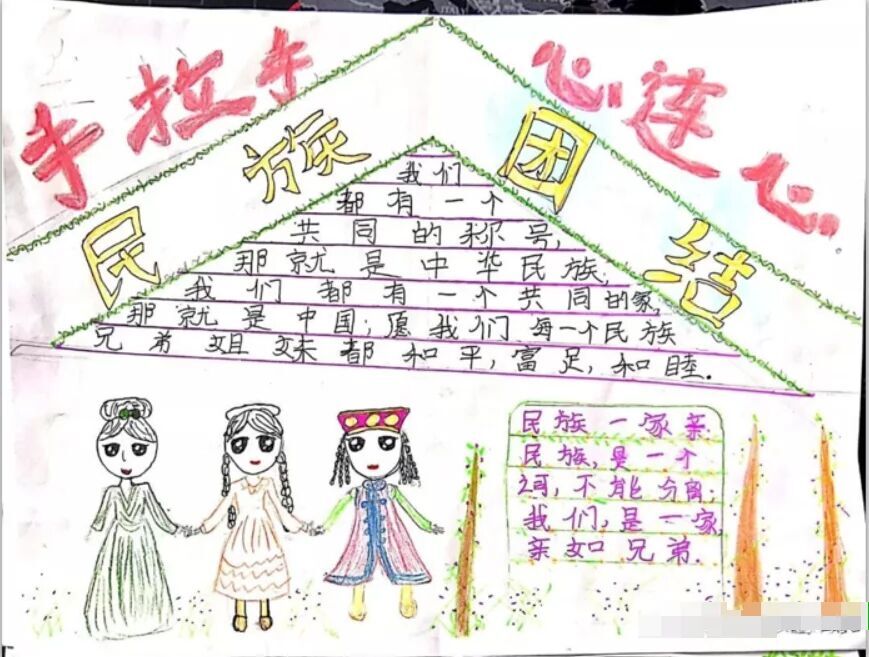 手拉手 心连心
民族团结
我们
都有一个
共同的称号,
那就是中华民族;
我们都有一个共同的家,
那就是中国;愿我们每一个民族
兄弟姐妹都和平,富足,和睦.
民族一家亲.
民族,是一个
词,不能分离;
我们,是一家,
亲如兄弟.